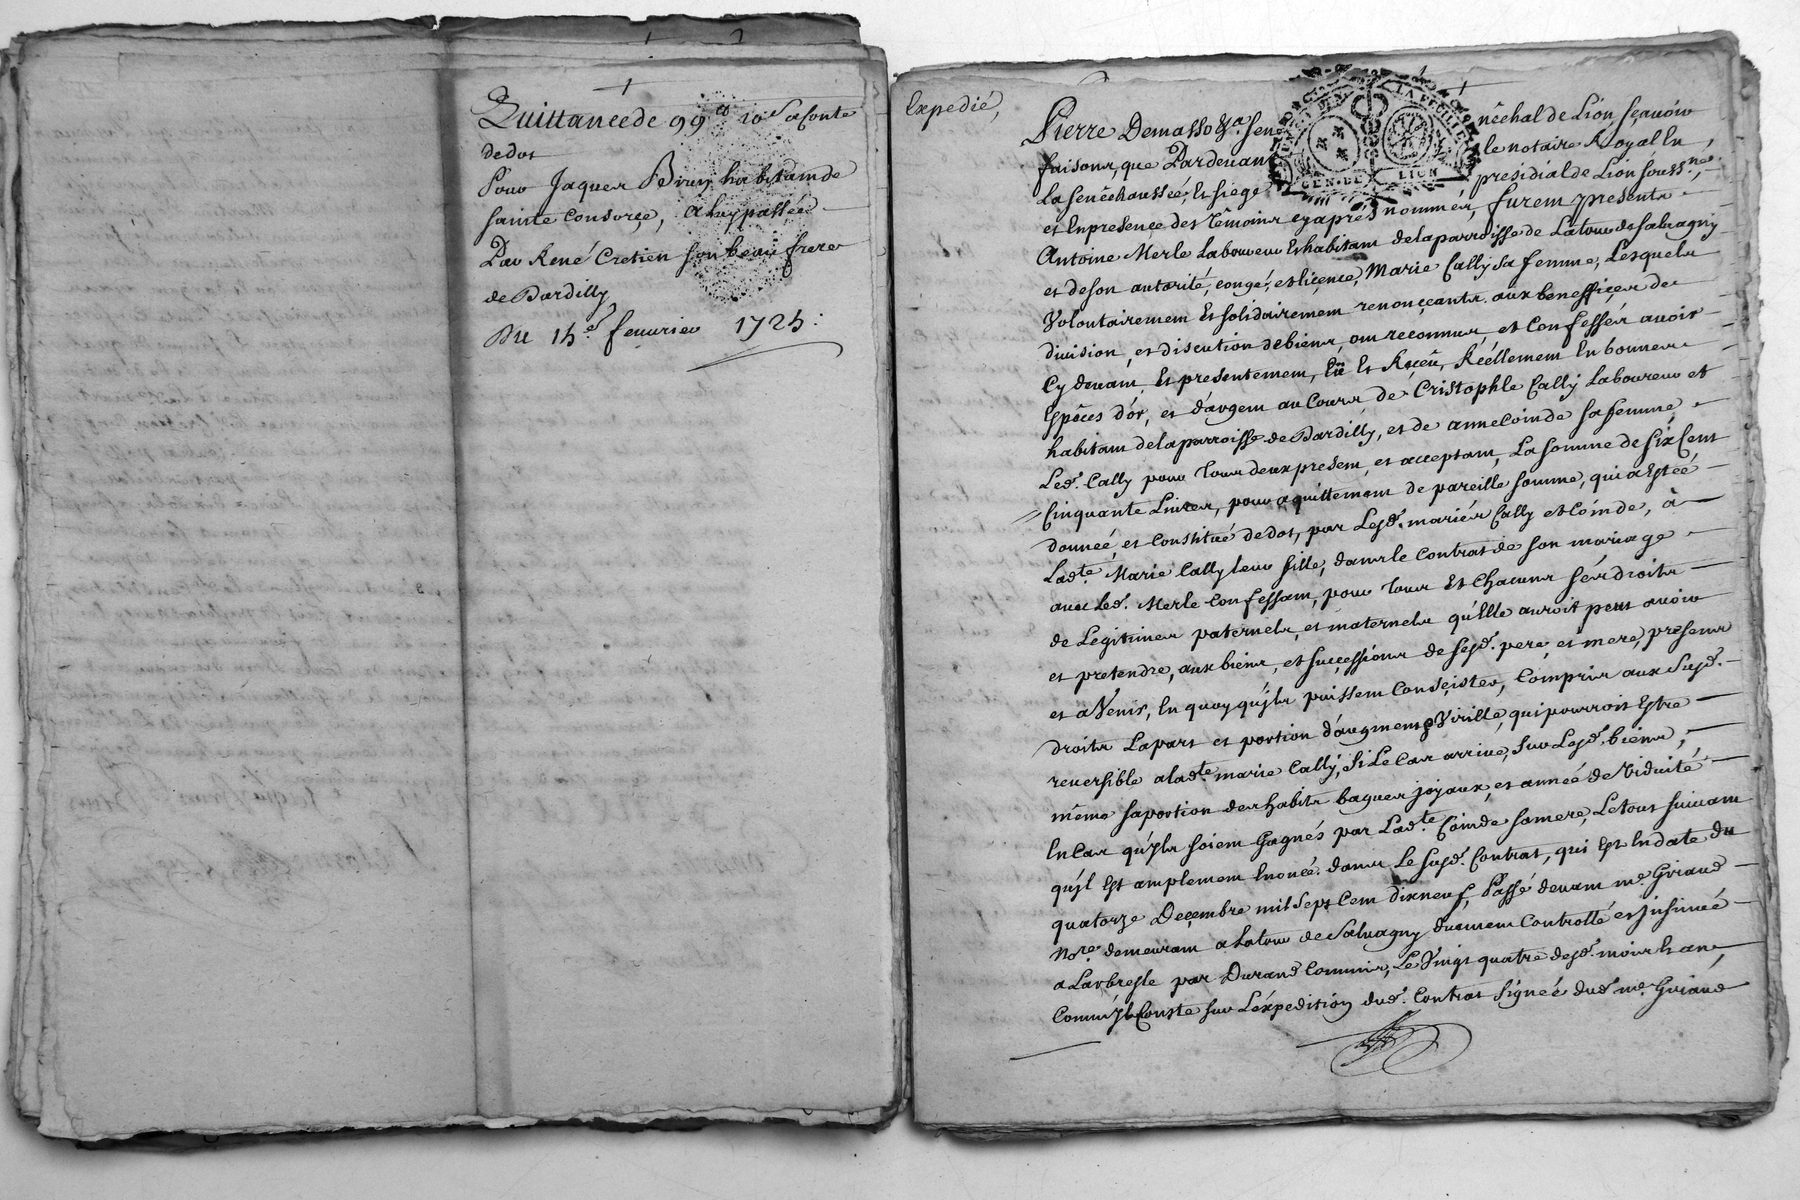 Quittance de 99ᵗᵗ 10ˢ a Conte
de dot
Pour Jaques Brun habitam de
sainte Consorçe, a luy passée
Par René Cretien son beau frere
de Dardilly
Du 15.ᵉ feuurier 1725:
Expedié,
Pierre Demasso &ᵃ. Sen néchal de Lion sçauoir
faisons, que Pardeuan le notaire Royal En
La senêchaussée, Et siege presidial de Lion souss.ⁿᵉ,
et En presence des Têmoins cy aprés nommés, furem presents
Antoine Merle Laboureur Et habitam de la parroisse de Latour de salvagny
et de son autorité, congé, et liçence, Marie Cally sa femme, Lesquels
Volontairemem Et solidairemem renonçeants aux beneffiçes de
diuision, et discution de biens, om reconnus et Confessés auoir
Cy deuam, Et presentemem, Eû Et Reçeû, Réellemem En bonnes
Espêces d'or, et d'argem au Cours de Cristophle Cally Laboureur et
habitam de la parroisse de Dardilly, et de anne Coinde sa femme
Led. Cally pour Tous deux presem, et acceptam, La somme de six Cem
Cinquante Livres, pour aquittemem de pareille somme, qui a Estéé
donneé, et Constitué de dot, par Lesd. mariés Cally et Coinde, à
Lad.ᵗᵉ Marie Cally leur fille, dans le Contrat de son mariage
auec Led. Merle Confessam, pour Tous Et Chacuns ses droits
de Legitimes paternels, et maternels qu'Elle auroit peut auoir
et pretendre, aux biens, et sucçessions de sesd. pere, et mere, presens
et a Venir, En quoy qu'ils puissem Consçister, Compris aux susd.
droits La part et portion d'augmem & Virille, qui pourroit Estre
reuersible a lad.ᵗᵉ marie Cally, si Le Cas arriue, sur Lesd. biens,
même sa portion des habits bagues joyaux, et anneé de Viduité
En Cas qu'ils soiem Gagnés par Lad.ᵗᵉ Coinde sa mere, Le tout suiuam
qu'il Est amplemem Enoncé dans Le susd. Contrat, qui Est En date du
quatorze Deçembre mil sept Cem dix neuf, Passé deuam m.ᵉ Giraud
No.ʳᵉ demeuram a Latour de Salvagny duemem Controllé et Insinué
a Larbresle par Durand Commis, Le Vingt quatre desd. mois Et an,
Comm'il Conste sur L'éxpedition dud. Contrat signeé dud. m.ᵉ Giraud